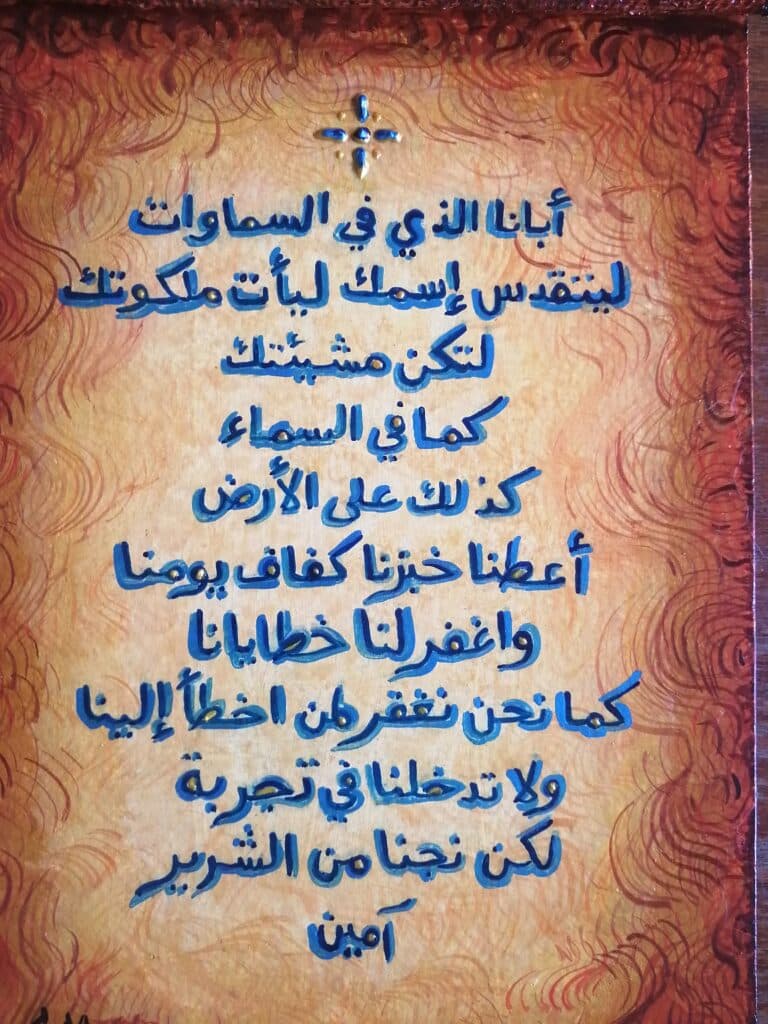 أبانا الذي في السماوات
ليتقدس إسمك ليأت ملكوتك
لتكن مشيئتك
كما في السماء
كذلك على الأرض
أعطنا خبزنا كفاف يومنا
واغفر لنا خطايانا
كما نحن نغفر لمن اخطأ إلينا
ولا تدخلنا في تجربة
لكن نجنا من الشرير
آمين